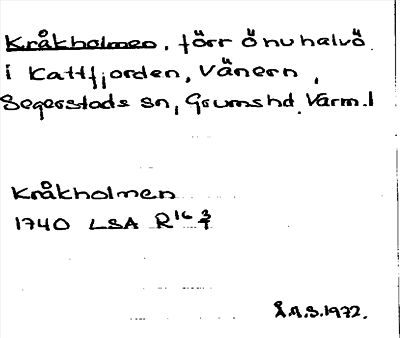 Kråkholmen, förr ö nu halvö
i Kattfjorden, Vänern,
Segerstads sn, Grums hd. Värml
Kråkholmen
1740 LSA R 16 3/1
Å.A.S. 1972.